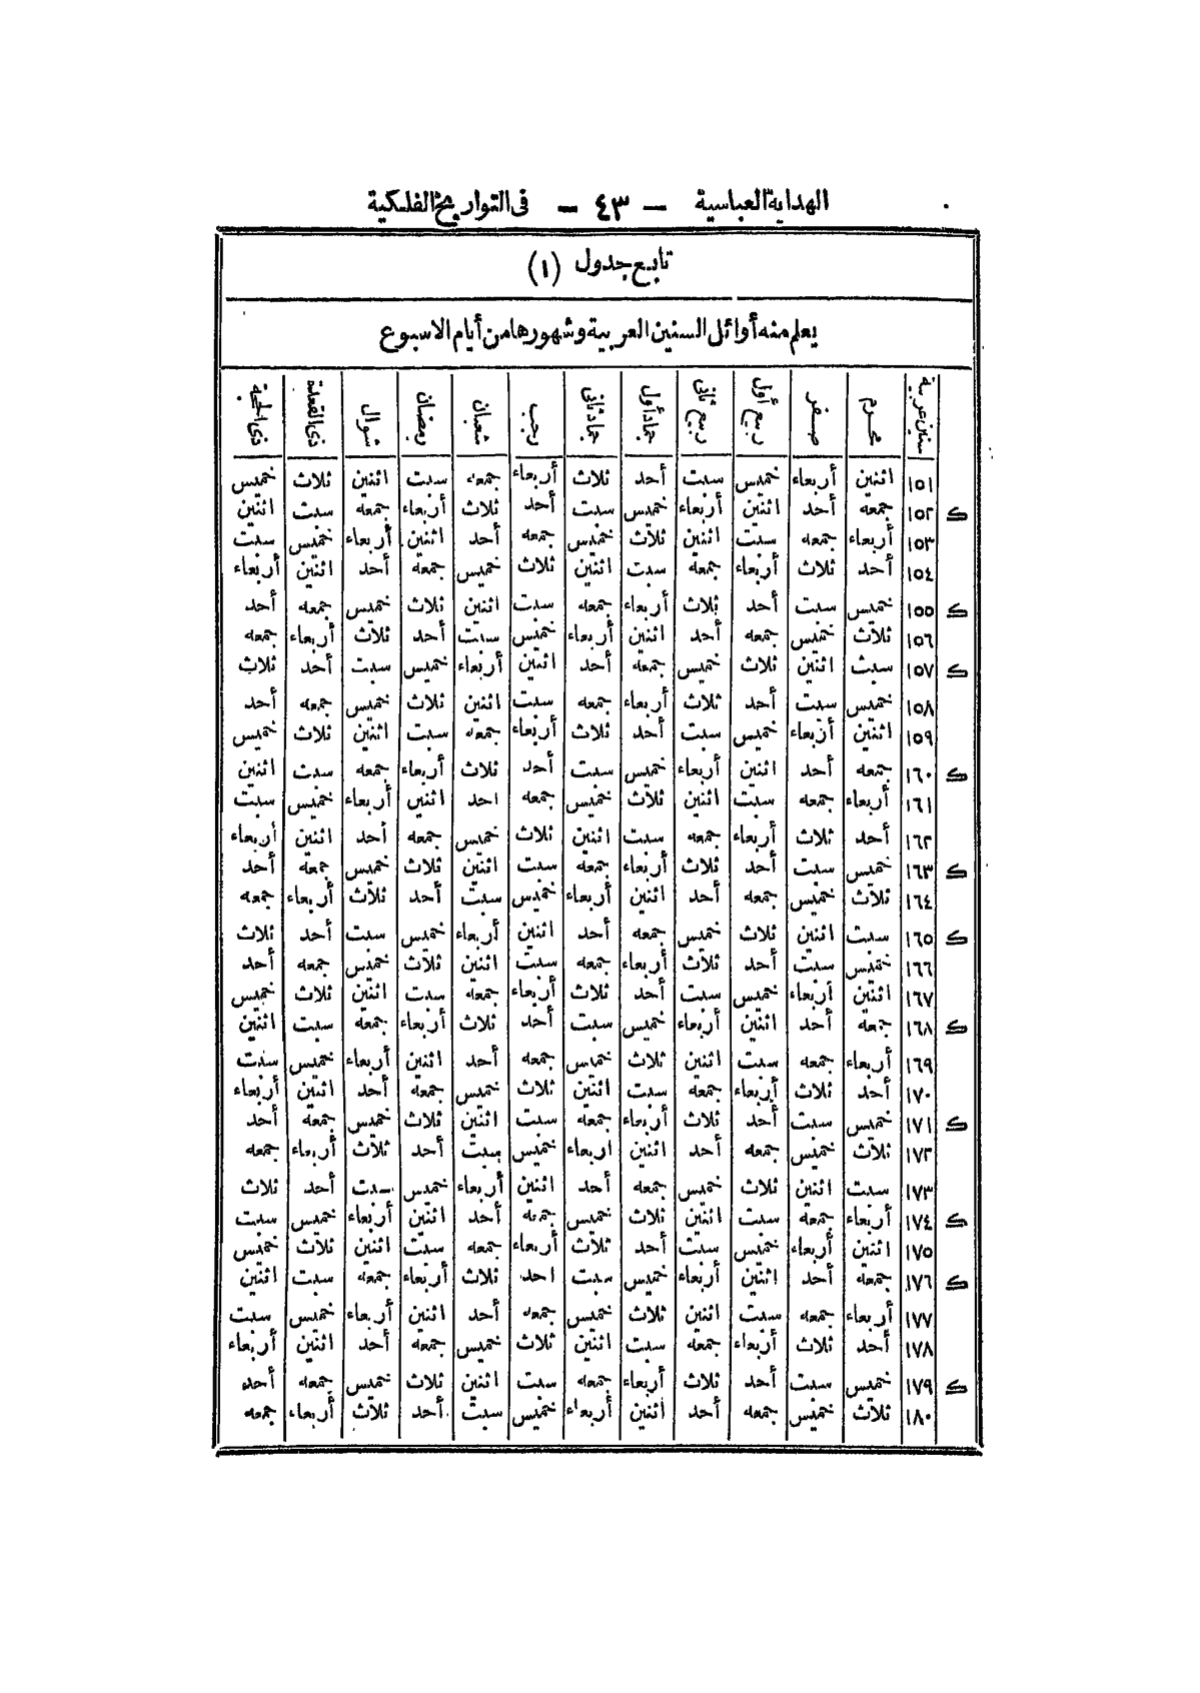 الهداية العباسية — ٤٣ — فى التواريخ الفلكية
تابع جدول (١)
يعلم منه أوائل السنين العربية وشهورها من أيام الاسبوع
سنين عربية محرم صفر ربيع أول ربيع ثانى جماد أول جماد ثانى رجب شعبان رمضان شوال ذى القعدة ذى الحجة
١٥١ اثنين أربعاء خميس سبت أحد ثلاث أربعاء جمعه سبت اثنين ثلاث خميس
ك ١٥٢ جمعه أحد اثنين أربعاء خميس سبت أحد ثلاث أربعاء جمعه سبت اثنين
١٥٣ أربعاء جمعه سبت اثنين ثلاث خميس جمعه أحد اثنين أربعاء خميس سبت
١٥٤ أحد ثلاث أربعاء جمعه سبت اثنين ثلاث خميس جمعه أحد اثنين أربعاء
ك ١٥٥ خميس سبت أحد ثلاث أربعاء جمعه سبت اثنين ثلاث خميس جمعه أحد
١٥٦ ثلاث خميس جمعه أحد اثنين أربعاء خميس سبت أحد ثلاث أربعاء جمعه
ك ١٥٧ سبت اثنين ثلاث خميس جمعه أحد اثنين أربعاء خميس سبت أحد ثلاث
١٥٨ خميس سبت أحد ثلاث أربعاء جمعه سبت اثنين ثلاث خميس جمعه أحد
١٥٩ اثنين أربعاء خميس سبت أحد ثلاث أربعاء جمعه سبت اثنين ثلاث خميس
ك ١٦٠ جمعه أحد اثنين أربعاء خميس سبت أحد ثلاث أربعاء جمعه سبت اثنين
١٦١ أربعاء جمعه سبت اثنين ثلاث خميس جمعه احد اثنين أربعاء خميس سبت
١٦٢ أحد ثلاث أربعاء جمعه سبت اثنين ثلاث خميس جمعه أحد اثنين أربعاء
ك ١٦٣ خميس سبت أحد ثلاث أربعاء جمعه سبت اثنين ثلاث خميس جمعه أحد
١٦٤ ثلاث خميس جمعه أحد اثنين أربعاء خميس سبت أحد ثلاث أربعاء جمعه
ك ١٦٥ سبت اثنين ثلاث خميس جمعه أحد اثنين أربعاء خميس سبت أحد ثلاث
١٦٦ خميس سبت أحد ثلاث أربعاء جمعه سبت اثنين ثلاث خميس جمعه أحد
١٦٧ اثنين أربعاء خميس سبت أحد ثلاث أربعاء جمعه سبت اثنين ثلاث خميس
ك ١٦٨ جمعه أحد اثنين أربعاء خميس سبت أحد ثلاث أربعاء جمعه سبت اثنين
١٦٩ أربعاء جمعه سبت اثنين ثلاث خميس جمعه أحد اثنين أربعاء خميس سبت
١٧٠ أحد ثلاث أربعاء جمعه سبت اثنين ثلاث خميس جمعه أحد اثنين أربعاء
ك ١٧١ خميس سبت أحد ثلاث أربعاء جمعه سبت اثنين ثلاث خميس جمعه أحد
١٧٢ ثلاث خميس جمعه أحد اثنين اربعاء خميس سبت أحد ثلاث أربعاء جمعه
١٧٣ سبت اثنين ثلاث خميس جمعه أحد اثنين أربعاء خميس سبت أحد ثلاث
ك ١٧٤ أربعاء جمعه سبت اثنين ثلاث خميس جمعه أحد اثنين أربعاء خميس سبت
١٧٥ اثنين أربعاء خميس سبت أحد ثلاث أربعاء جمعه سبت اثنين ثلاث خميس
ك ١٧٦ جمعه أحد اثنين أربعاء خميس سبت احد ثلاث أربعاء جمعه سبت اثنين
١٧٧ أربعاء جمعه سبت اثنين ثلاث خميس جمعه أحد اثنين أربعاء خميس سبت
١٧٨ أحد ثلاث أربعاء جمعه سبت اثنين ثلاث خميس جمعه أحد اثنين أربعاء
ك ١٧٩ خميس سبت أحد ثلاث أربعاء جمعه سبت اثنين ثلاث خميس جمعه أحد
١٨٠ ثلاث خميس جمعه أحد اثنين أربعاء خميس سبت أحد ثلاث أربعاء جمعه